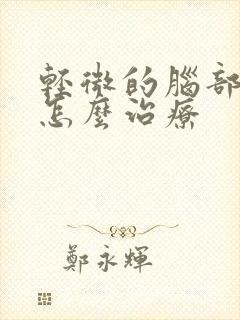 輕微的腦部
怎麼治療
鄭永輝